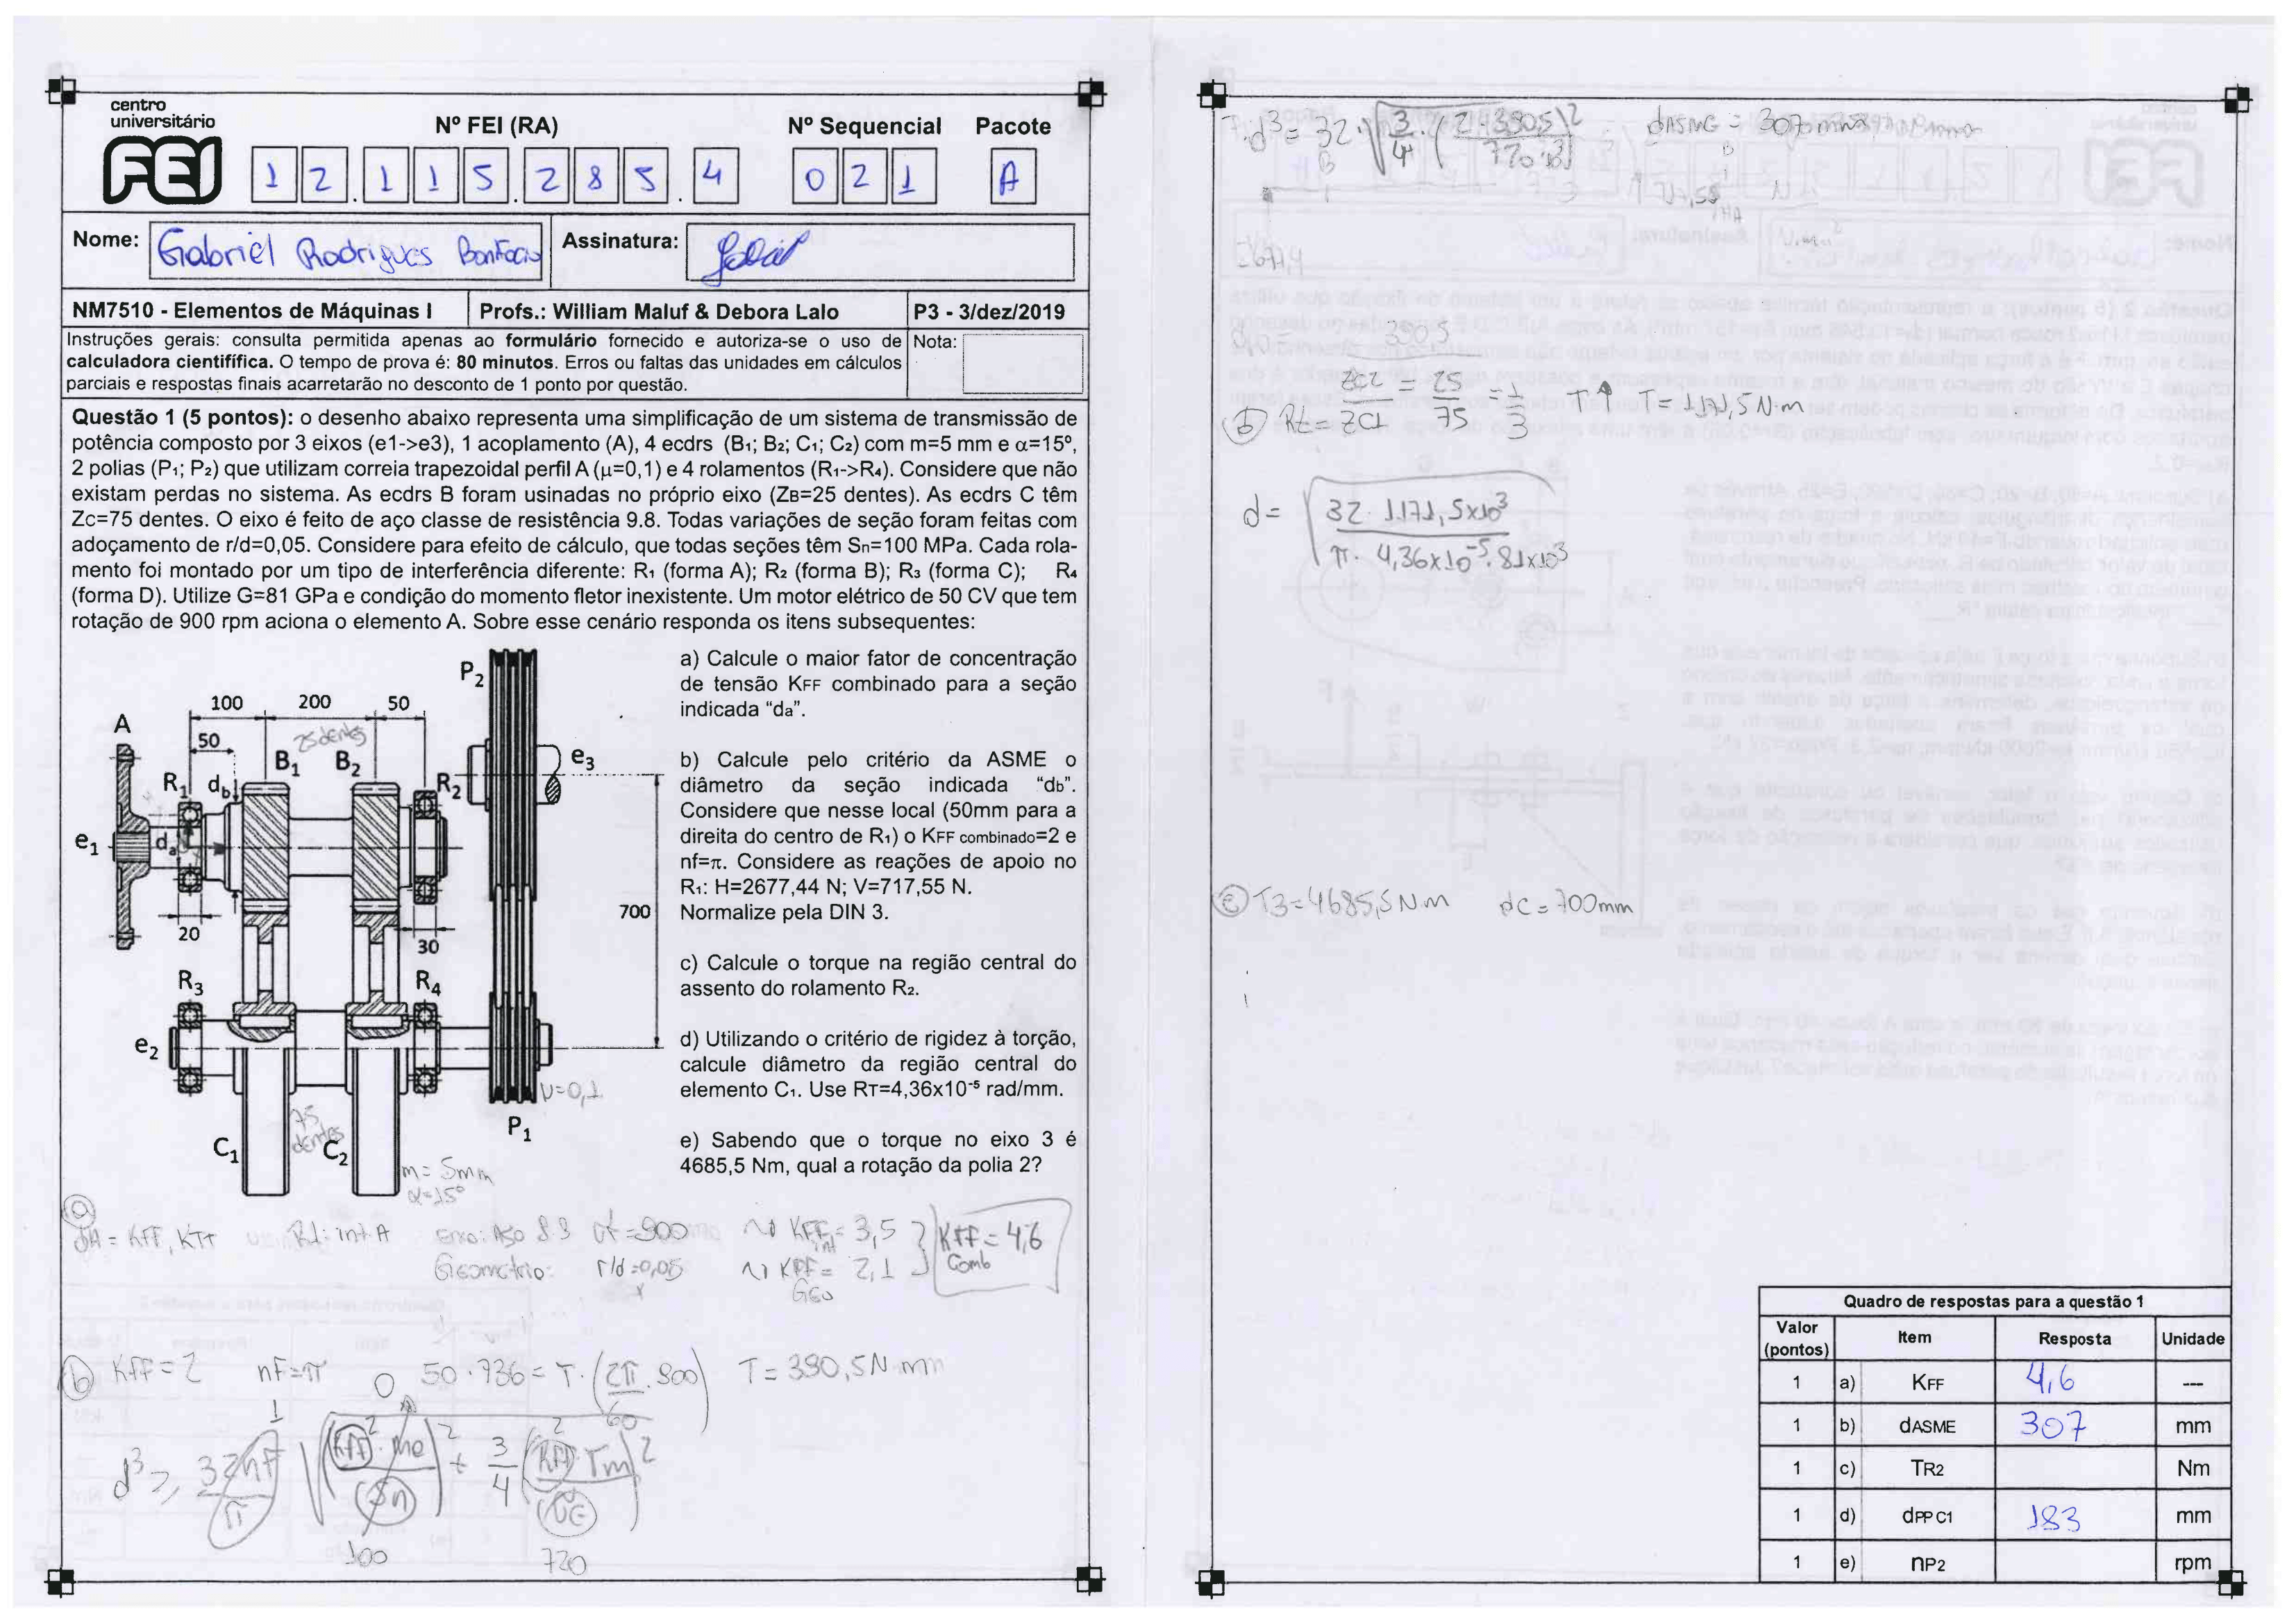 centro
universitário
FEI
Nº FEI (RA)
Nº Sequencial
Pacote
12.115.285.4
021
A
Nome:
Gabriel Rodrigues Bonifacio
Assinatura:
NM7510 - Elementos de Máquinas I
Profs.: William Maluf & Debora Lalo
P3 - 3/dez/2019
Instruções gerais: consulta permitida apenas ao formulário fornecido e autoriza-se o uso de
calculadora cientifífica. O tempo de prova é: 80 minutos. Erros ou faltas das unidades em cálculos
parciais e respostas finais acarretarão no desconto de 1 ponto por questão.
Nota:
Questão 1 (5 pontos): o desenho abaixo representa uma simplificação de um sistema de transmissão de
potência composto por 3 eixos (e1->e3), 1 acoplamento (A), 4 ecdrs (B1; B2; C1; C2) com m=5 mm e α=15º,
2 polias (P1; P2) que utilizam correia trapezoidal perfil A (μ=0,1) e 4 rolamentos (R1->R4). Considere que não
existam perdas no sistema. As ecdrs B foram usinadas no próprio eixo (ZB=25 dentes). As ecdrs C têm
Zc=75 dentes. O eixo é feito de aço classe de resistência 9.8. Todas variações de seção foram feitas com
adoçamento de r/d=0,05. Considere para efeito de cálculo, que todas seções têm Sn=100 MPa. Cada rola-
mento foi montado por um tipo de interferência diferente: R1 (forma A); R2 (forma B); R3 (forma C); R4
(forma D). Utilize G=81 GPa e condição do momento fletor inexistente. Um motor elétrico de 50 CV que tem
rotação de 900 rpm aciona o elemento A. Sobre esse cenário responda os itens subsequentes:
a) Calcule o maior fator de concentração
de tensão KFF combinado para a seção
indicada “da”.
b) Calcule pelo critério da ASME o
diâmetro da seção indicada “db”.
Considere que nesse local (50mm para a
direita do centro de R1) o KFF combinado=2 e
nf=π. Considere as reações de apoio no
R1: H=2677,44 N; V=717,55 N.
Normalize pela DIN 3.
c) Calcule o torque na região central do
assento do rolamento R2.
d) Utilizando o critério de rigidez à torção,
calcule diâmetro da região central do
elemento C1. Use RT=4,36x10⁻⁵ rad/mm.
e) Sabendo que o torque no eixo 3 é
4685,5 Nm, qual a rotação da polia 2?
P2
100
200
50
A
25 dentes
50
B1
B2
e3
R1
db
R2
e1
da
700
20
30
R3
R4
e2
μ=0,1
P1
75
dentes
C1
C2
m=5mm
α=15°
(a)
dA = Kff, KTt
R1: int A
Eixo: Aço 9.8
~> KFF = 3,5
int
Geometria: r/d=0,05
~> KFF = 2,1
Geo
Kff = 4,6
Comb
(b) Kff=2 nF=π 50·736=T·(2π/60·900) T=390,5N·mm
d³ ≥ 32nF/π √((Kff·Me/(Sn))² + 3/4(Kff·Tm/(σe))²)
100
720
d³ = 32·√(3/4·(2·390,5/720·10³)²) = dASME = 307
390,5
(d) Rt = ZC2/ZC1 = 25/75 = 1/3 T↑ T=1171,5N·m
d = √(32·1171,5x10³/π·4,36x10⁻⁵·81x10³)
(e) T3=4685,5Nm dC=700mm
Quadro de respostas para a questão 1
Valor
(pontos)
Item
Resposta
Unidade
1 a) KFF 4,6 ---
1 b) dASME 307 mm
1 c) TR2 Nm
1 d) dPP C1 183 mm
1 e) nP2 rpm